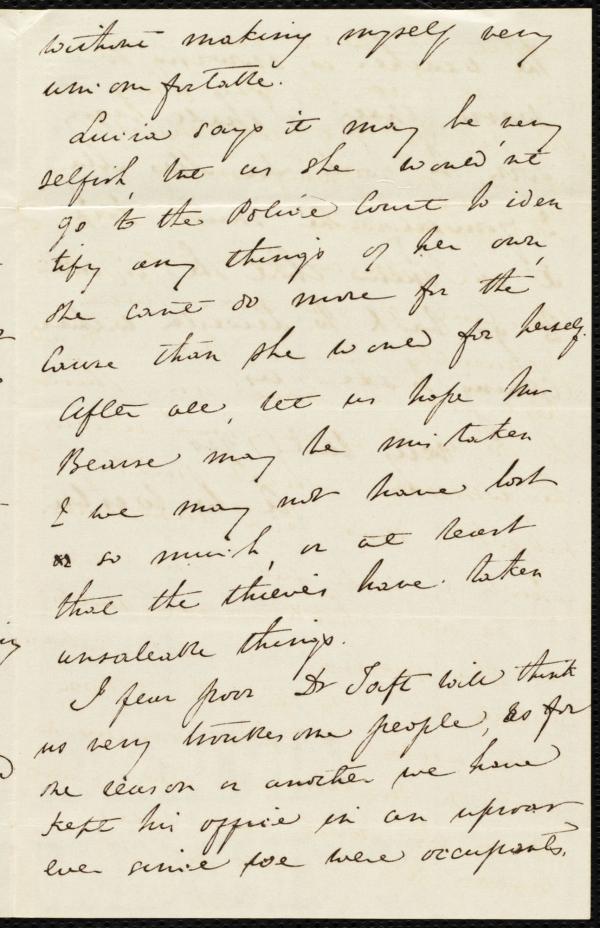 without making myself very
uncomfortable.
Lucia says it may be very
selfish, but as she would n't
go to the Police Court to iden
tify any things of her own,
she can't do more for the
Cause than she would for herself.
After all, let us hope Mr
Bearse may be mistaken
& we may not have lost
so much, or at least
that the thieves have taken
unsaleable things.
I fear poor Dr Taft will think
us very troublesome people, as for
one reason or another we have
kept his office in an uproar
ever since we were occupants.